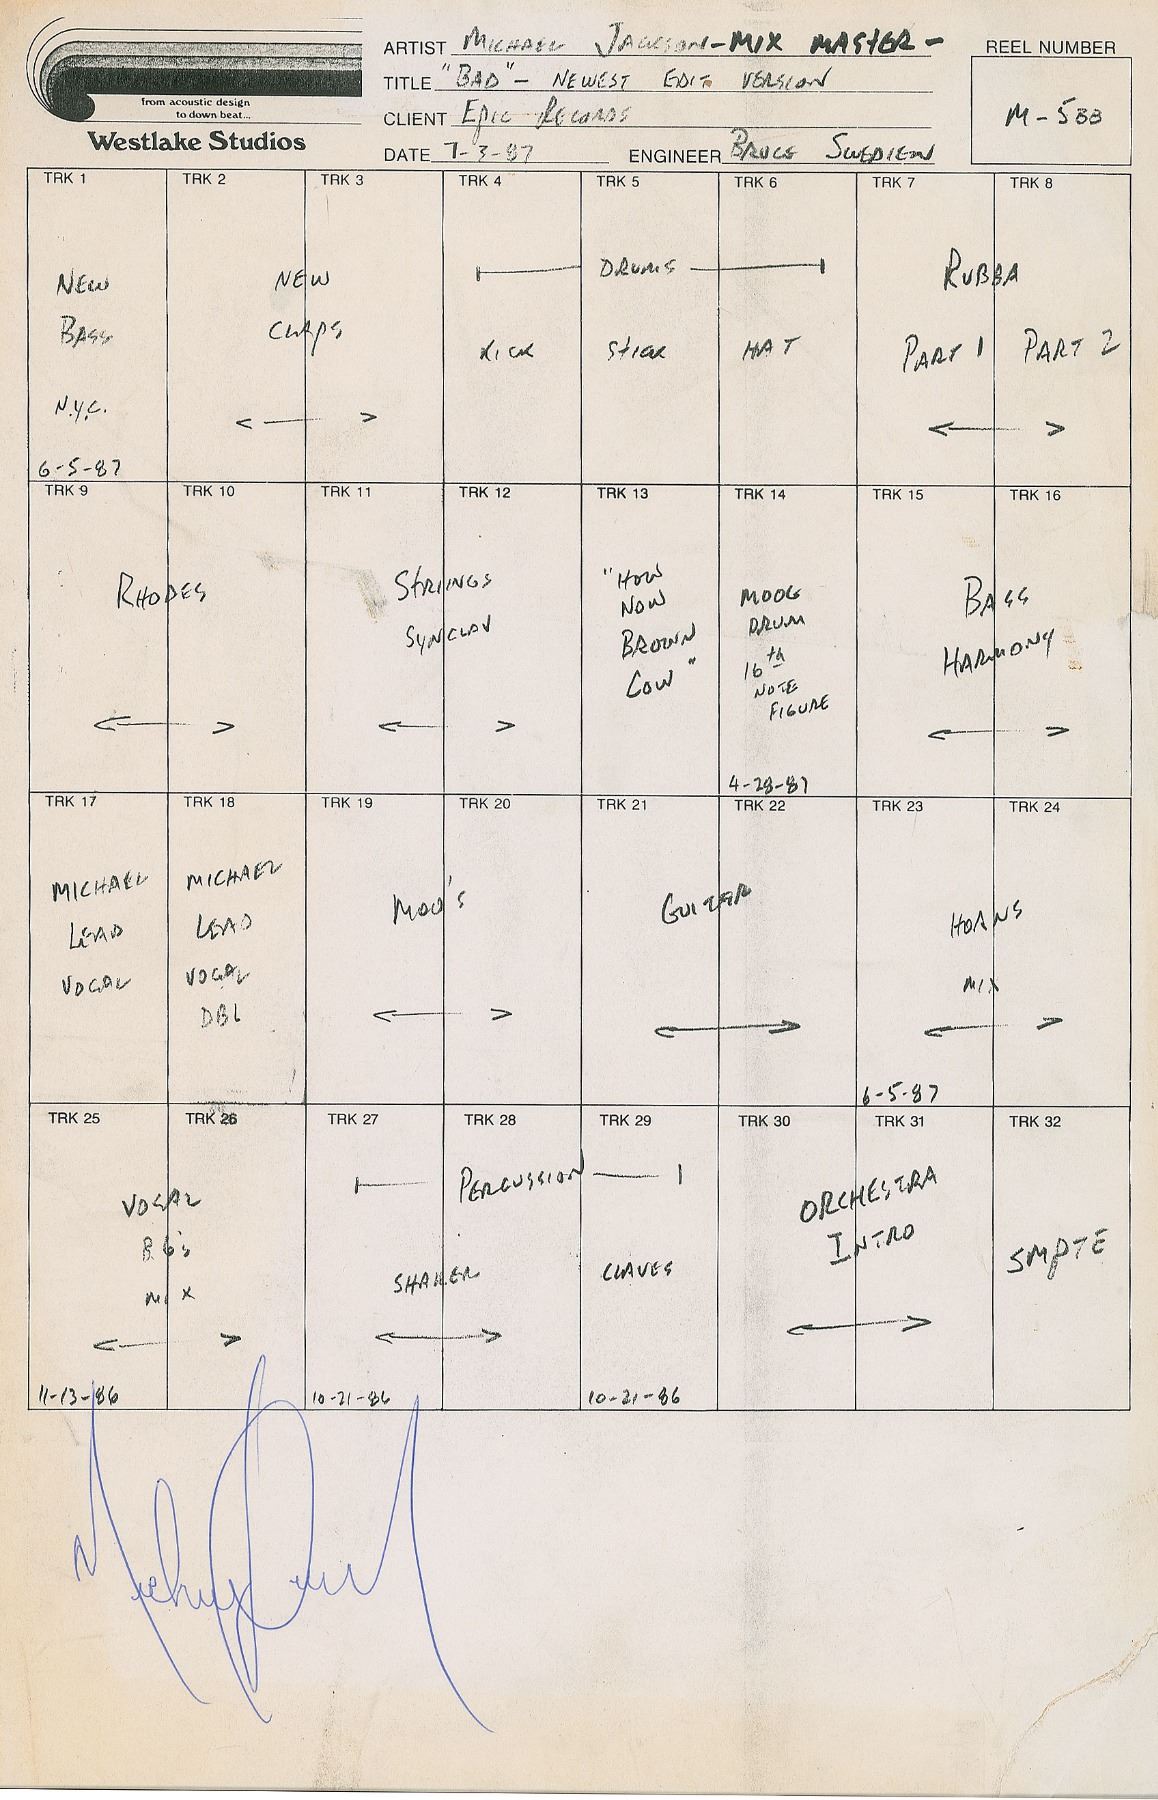 from acoustic design
to down beat...
Westlake Studios
ARTIST MICHAEL JACKSON - MIX MASTER -
TITLE "BAD" - NEWEST EDIT VERSION
CLIENT EPIC RECORDS
DATE 7-3-87 ENGINEER BRUCE SWEDIEN
REEL NUMBER
M-533
TRK 1
NEW
BASS
N.Y.C.
6-5-87
TRK 2 TRK 3
NEW
CLAPS
TRK 4 TRK 5 TRK 6
DRUMS
KICK STICK HAT
TRK 7 TRK 8
RUBBA
PART 1 PART 2
TRK 9 TRK 10
RHODES
TRK 11 TRK 12
STRINGS
SYNCLAV
TRK 13
"HOW
NOW
BROWN
COW"
TRK 14
MOOG
DRUM
16th
NOTE
FIGURE
4-28-87
TRK 15 TRK 16
BASS
HARMONY
TRK 17
MICHAEL
LEAD
VOCAL
TRK 18
MICHAEL
LEAD
VOCAL
DBL
TRK 19 TRK 20
MOO'S
TRK 21 TRK 22
GUITAR
TRK 23 TRK 24
HORNS
MIX
6-5-87
TRK 25 TRK 26
VOCAL
B.G's
MIX
11-13-86
TRK 27 TRK 28 TRK 29
PERCUSSION
SHAKER CLAVES
10-21-86 10-21-86
TRK 30 TRK 31
ORCHESTRA
INTRO
TRK 32
SMPTE